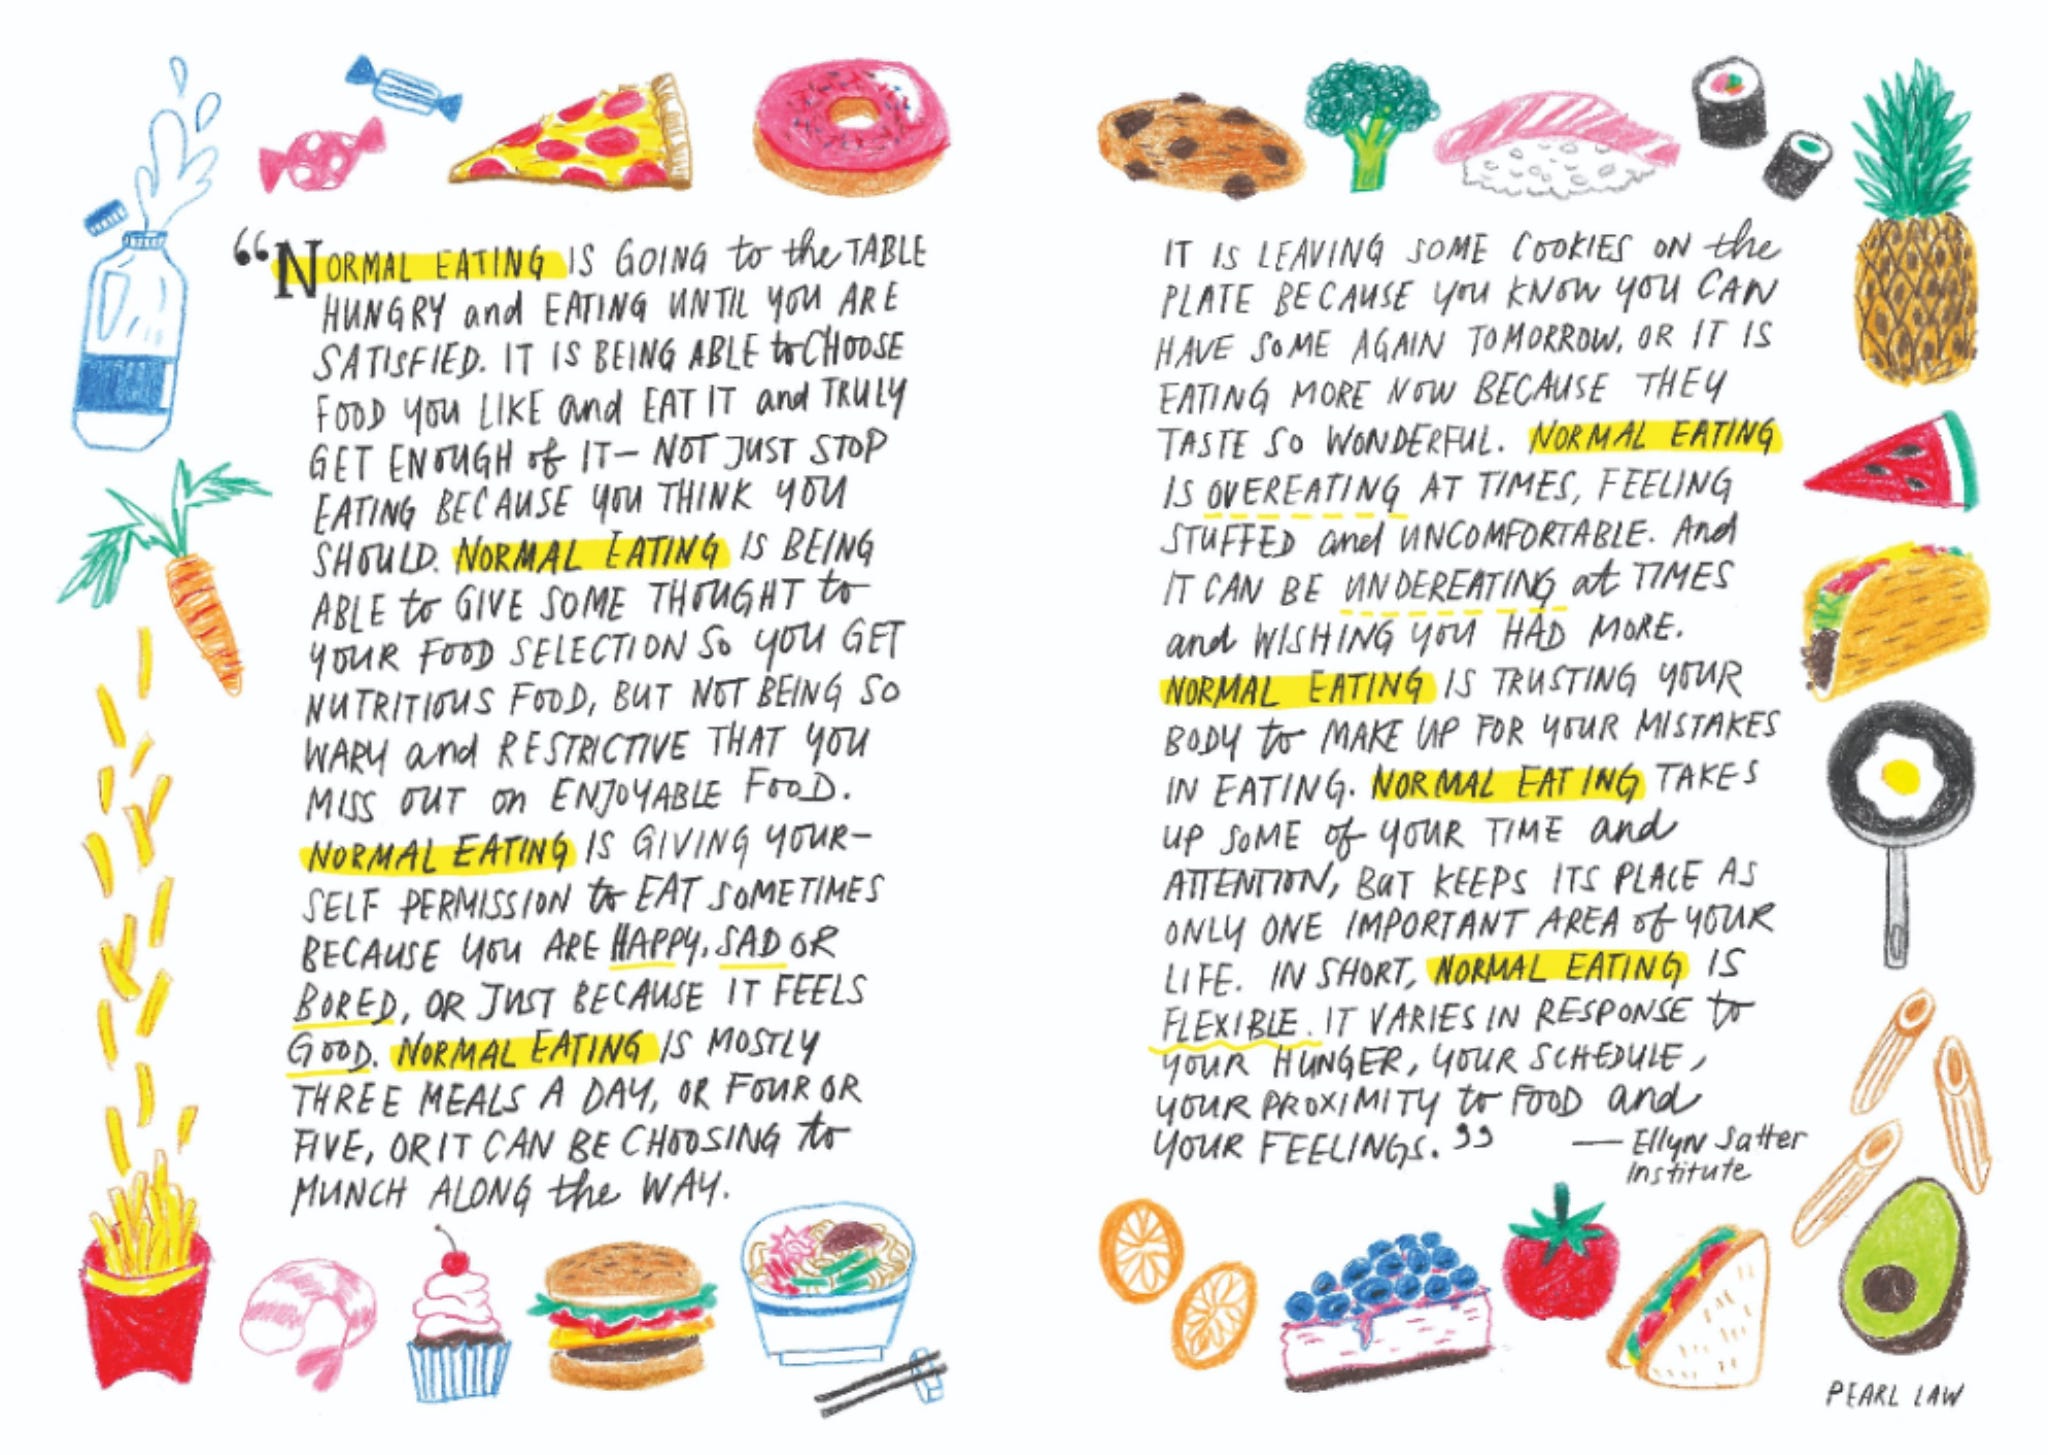 “NORMAL EATING IS GOING to the TABLE
HUNGRY and EATING UNTIL YOU ARE
SATISFIED. IT IS BEING ABLE to CHOOSE
FOOD YOU LIKE and EAT IT and TRULY
GET ENOUGH of IT – NOT JUST STOP
EATING BECAUSE YOU THINK YOU
SHOULD. NORMAL EATING IS BEING
ABLE to GIVE SOME THOUGHT to
YOUR FOOD SELECTION SO YOU GET
NUTRITIOUS FOOD, BUT NOT BEING SO
WARY and RESTRICTIVE THAT YOU
MISS OUT on ENJOYABLE FOOD.
NORMAL EATING IS GIVING YOUR-
SELF PERMISSION to EAT SOMETIMES
BECAUSE YOU ARE HAPPY, SAD OR
BORED, OR JUST BECAUSE IT FEELS
GOOD. NORMAL EATING IS MOSTLY
THREE MEALS A DAY, OR FOUR OR
FIVE, OR IT CAN BE CHOOSING to
MUNCH ALONG the WAY.
IT IS LEAVING SOME COOKIES ON the
PLATE BECAUSE YOU KNOW YOU CAN
HAVE SOME AGAIN TOMORROW, OR IT IS
EATING MORE NOW BECAUSE THEY
TASTE SO WONDERFUL. NORMAL EATING
IS OVEREATING AT TIMES, FEELING
STUFFED and UNCOMFORTABLE. And
IT CAN BE UNDEREATING at TIMES
and WISHING YOU HAD MORE.
NORMAL EATING IS TRUSTING YOUR
BODY to MAKE UP FOR YOUR MISTAKES
IN EATING. NORMAL EATING TAKES
UP SOME of YOUR TIME and
ATTENTION, BUT KEEPS ITS PLACE AS
ONLY ONE IMPORTANT AREA of YOUR
LIFE. IN SHORT, NORMAL EATING IS
FLEXIBLE. IT VARIES IN RESPONSE to
YOUR HUNGER, YOUR SCHEDULE,
YOUR PROXIMITY to FOOD and
YOUR FEELINGS.”
— Ellyn Satter
Institute
PEARL LAW